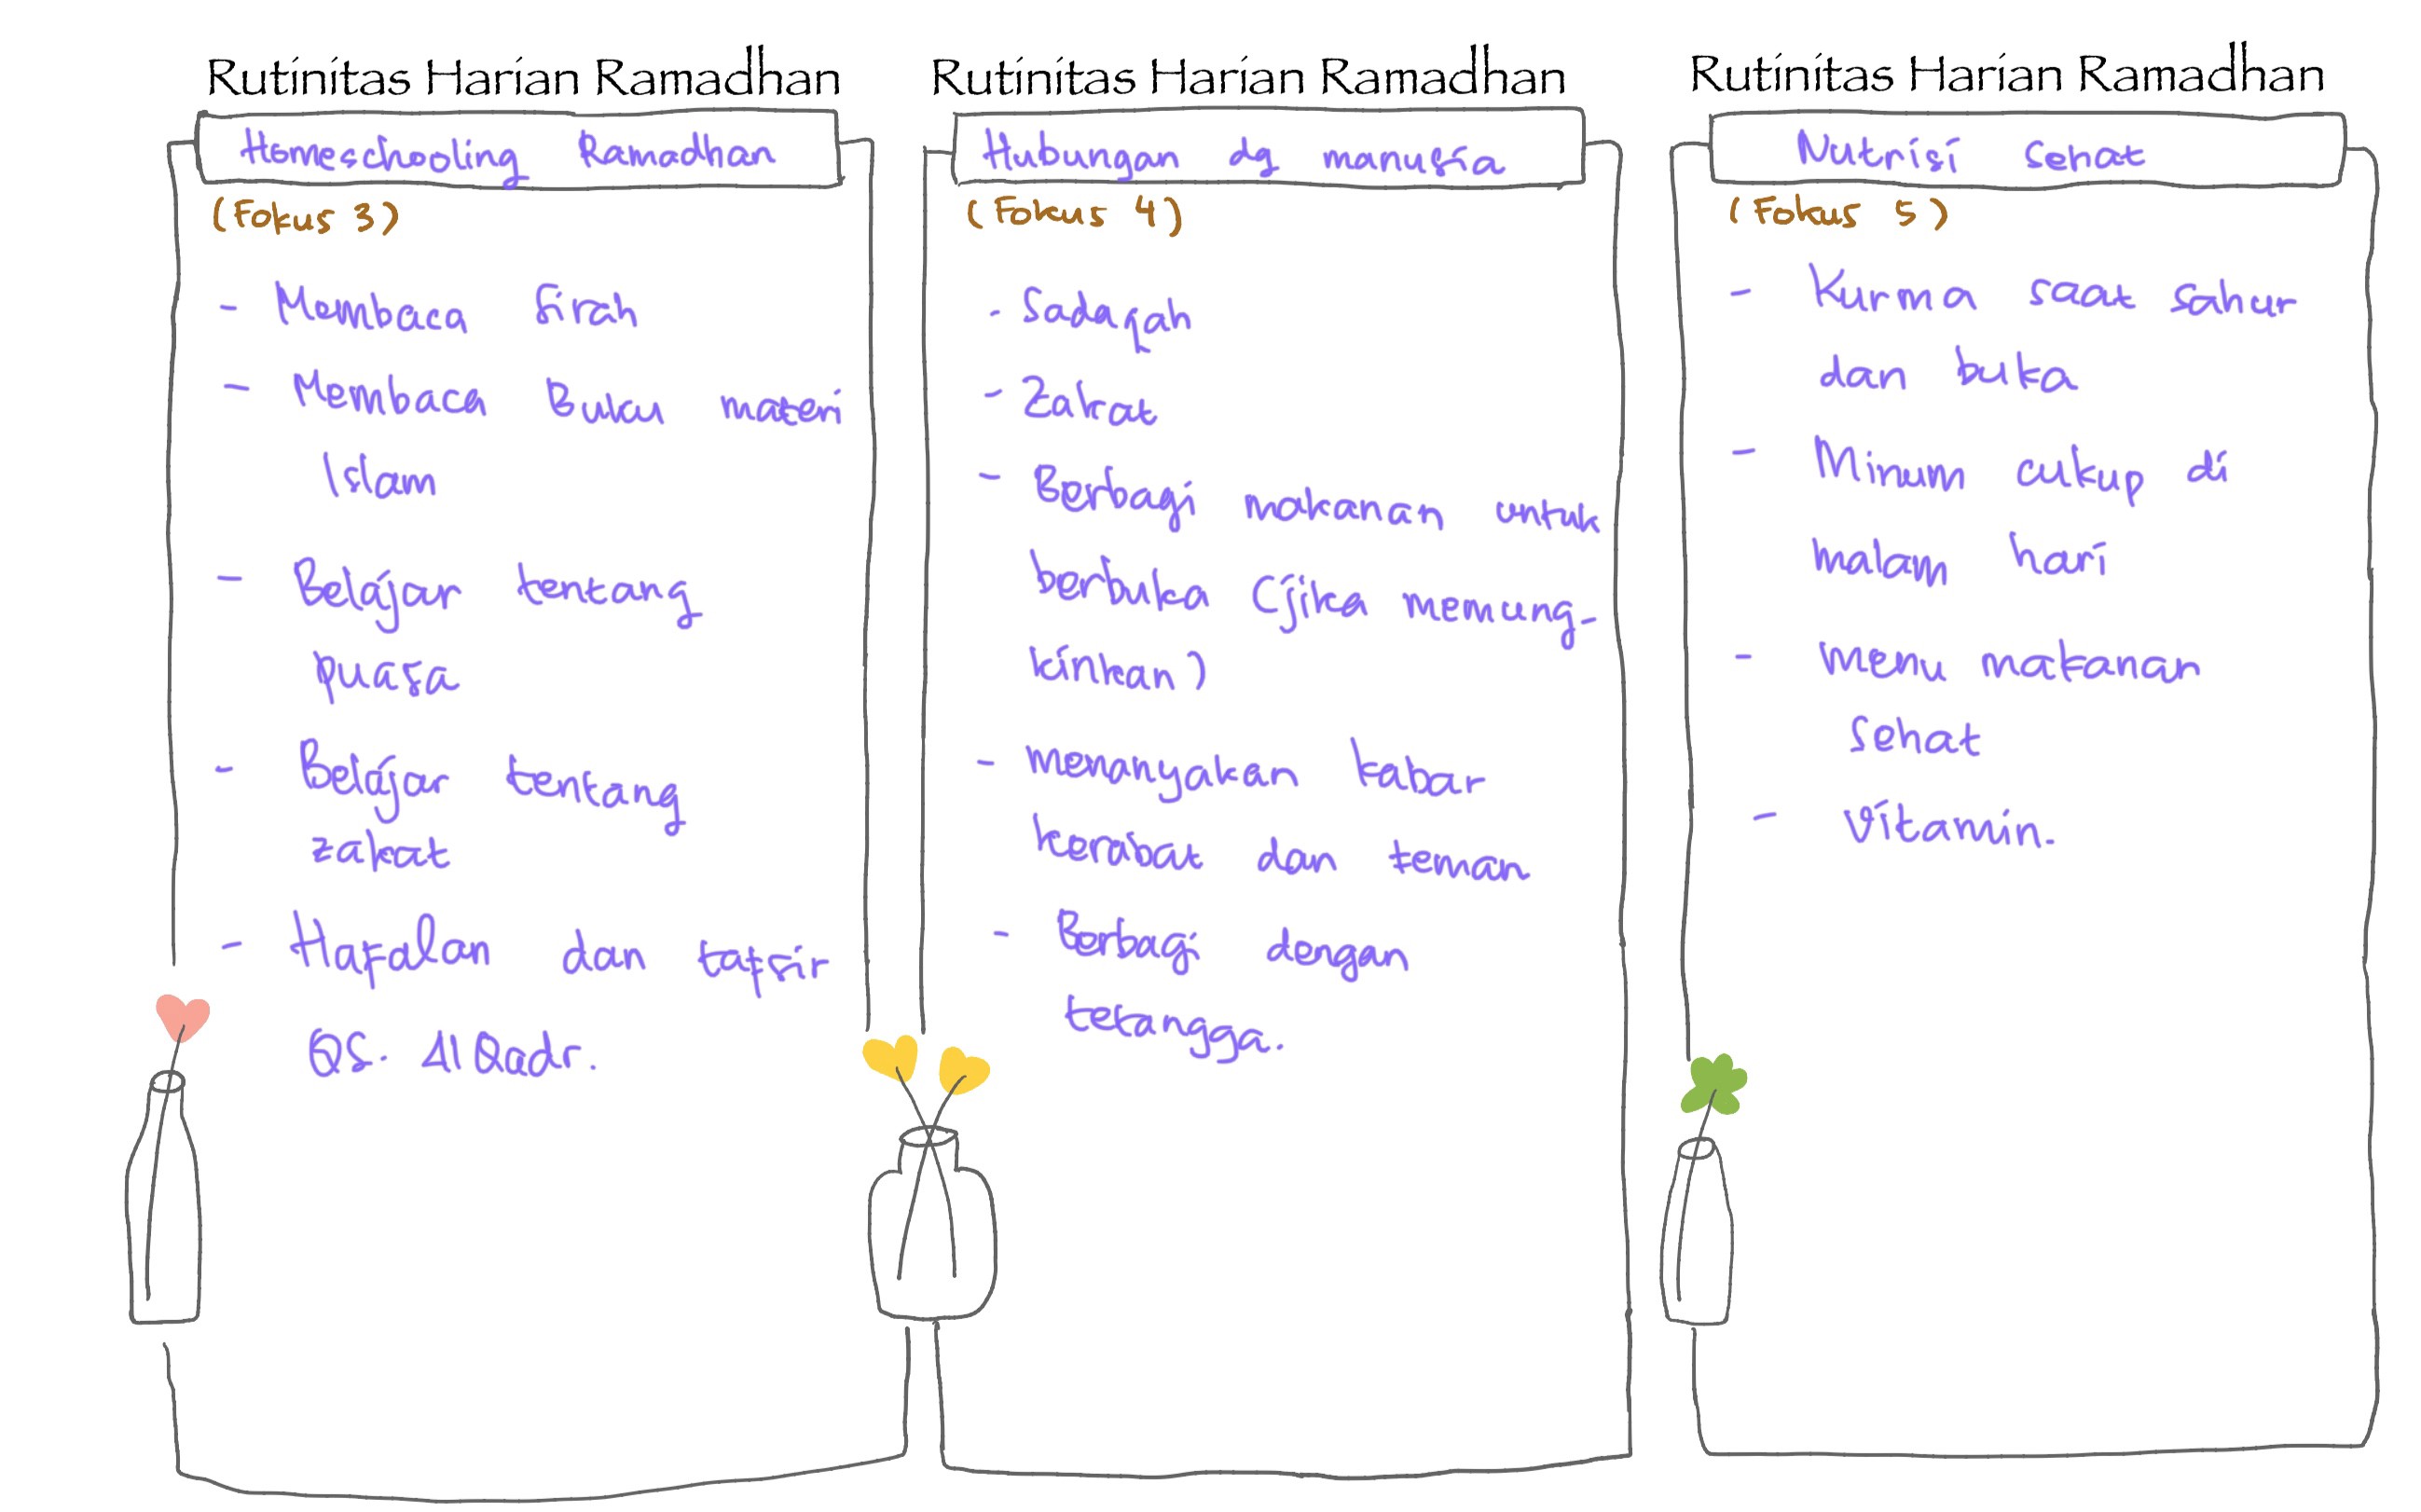 Rutinitas Harian Ramadhan
Homeschooling Ramadhan
(Fokus 3)
- Membaca Sirah
- Membaca Buku materi
Islam
- Belajar tentang
puasa
- Belajar tentang
zakat
- Hafalan dan tafsir
QS. Al Qadr.
Rutinitas Harian Ramadhan
Hubungan dg manusia
(Fokus 4)
- Sadaqah
- Zakat
- Berbagi makanan untuk
berbuka (jika memung-
kinkan)
- menanyakan kabar
kerabat dan teman
- Berbagi dengan
tetangga.
Rutinitas Harian Ramadhan
Nutrisi Sehat
(Fokus 5)
- Kurma saat sahur
dan buka
- Minum cukup di
malam hari
- menu makanan
sehat
- Vitamin.